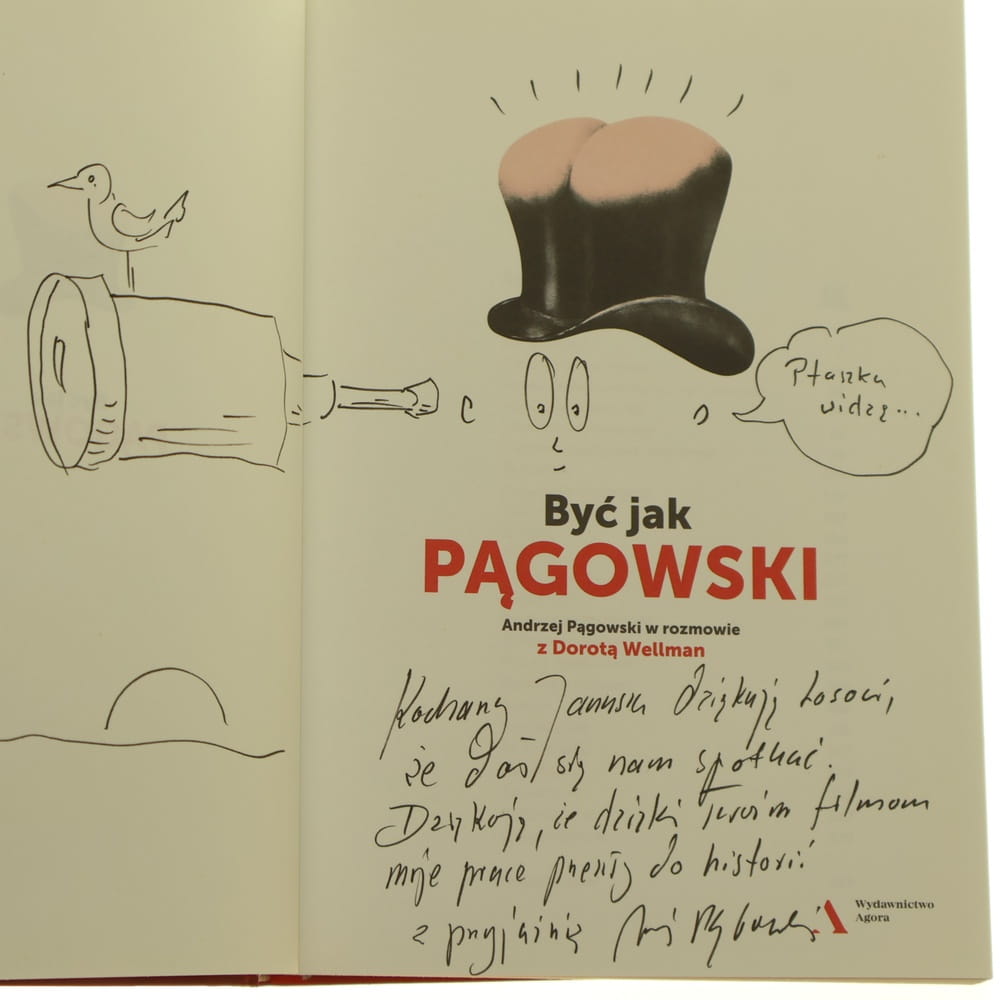 Ptaszka
widzę...
Być jak
PĄGOWSKI
Andrzej Pągowski w rozmowie
z Dorotą Wellman
Kochany Januszu dziękuję Losowi,
że dał się nam spotkać.
Dziękuję, że dzięki Twoim filmom
moje prace przeszły do historii
z przyjaźnią
Wydawnictwo
Agora